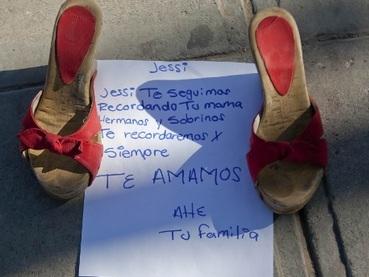 Jessi
Jessi Te Seguimos
Recordando Tu mama
Hermanos y Sobrinos
Te recordaremos x
Siempre
TE AMAMOS
Atte
Tu familia